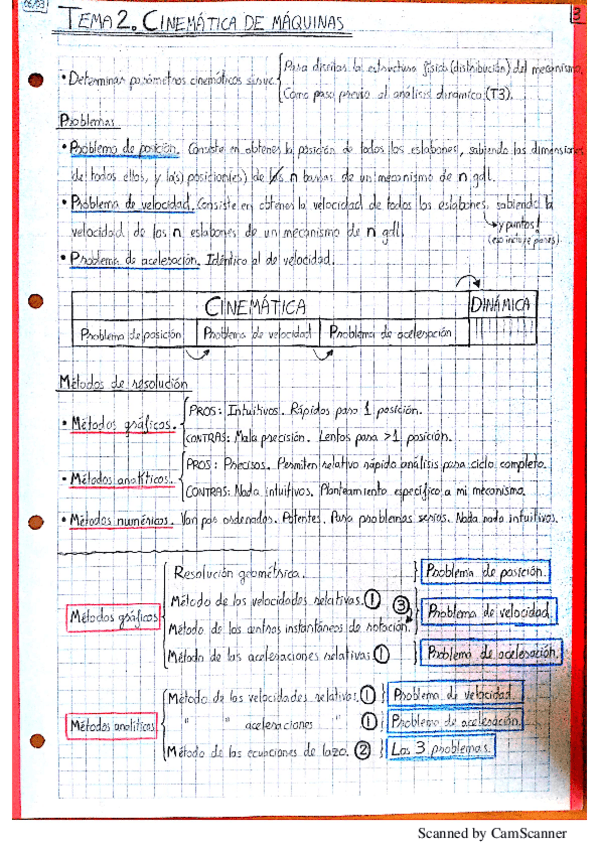 06/03
3
TEMA 2. CINEMÁTICA DE MÁQUINAS
• Determinar parámetros cinemáticos sirve:
Para describir la estructura física (distribución) del mecanismo.
Como paso previo al análisis dinámico (T3).
Problemas
• Problema de posición. Consiste en obtener la posición de todos los eslabones, sabiendo las dimensiones
de todos ellos, y la(s) posición(es) de los n barras de un mecanismo de n gdl.
• Problema de velocidad. Consiste en obtener la velocidad de todos los eslabones, sabiendo la
y puntos!
velocidad de los n eslabones de un mecanismo de n gdl.
(eso incluye pares).
• Problema de aceleración. Idéntico al de velocidad.
CINEMÁTICA DINÁMICA
Problema de posición Problema de velocidad Problema de aceleración
Métodos de resolución
• Métodos gráficos.
PROS: Intuitivos. Rápidos para 1 posición.
CONTRAS: Mala precisión. Lentos para >1 posición.
• Métodos analíticos.
PROS: Precisos. Permiten relativo rápido análisis para ciclo completo.
CONTRAS: Nada intuitivos. Planteamiento específico a mi mecanismo.
• Métodos numéricos. Van por ordenador. Potentes. Para problemas serios. Nada nada intuitivos.
Métodos gráficos
Resolución geométrica. Problema de posición.
Método de las velocidades relativas. 1 3 Problema de velocidad.
Método de los centros instantáneos de rotación.
Método de las aceleraciones relativas. 1 Problema de aceleración.
Métodos analíticos
Método de las velocidades relativas. 1 Problema de velocidad.
" " aceleraciones " 1 Problema de aceleración.
Método de las ecuaciones de lazo. 2 Los 3 problemas.
Scanned by CamScanner